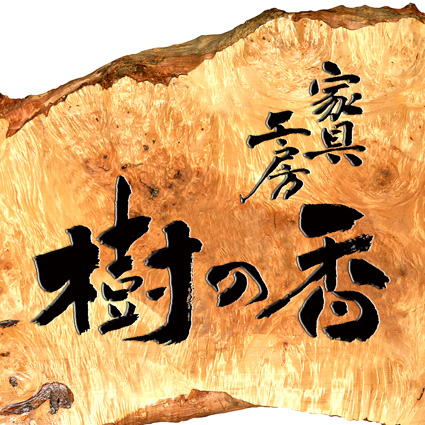 家具
工房
樹の香